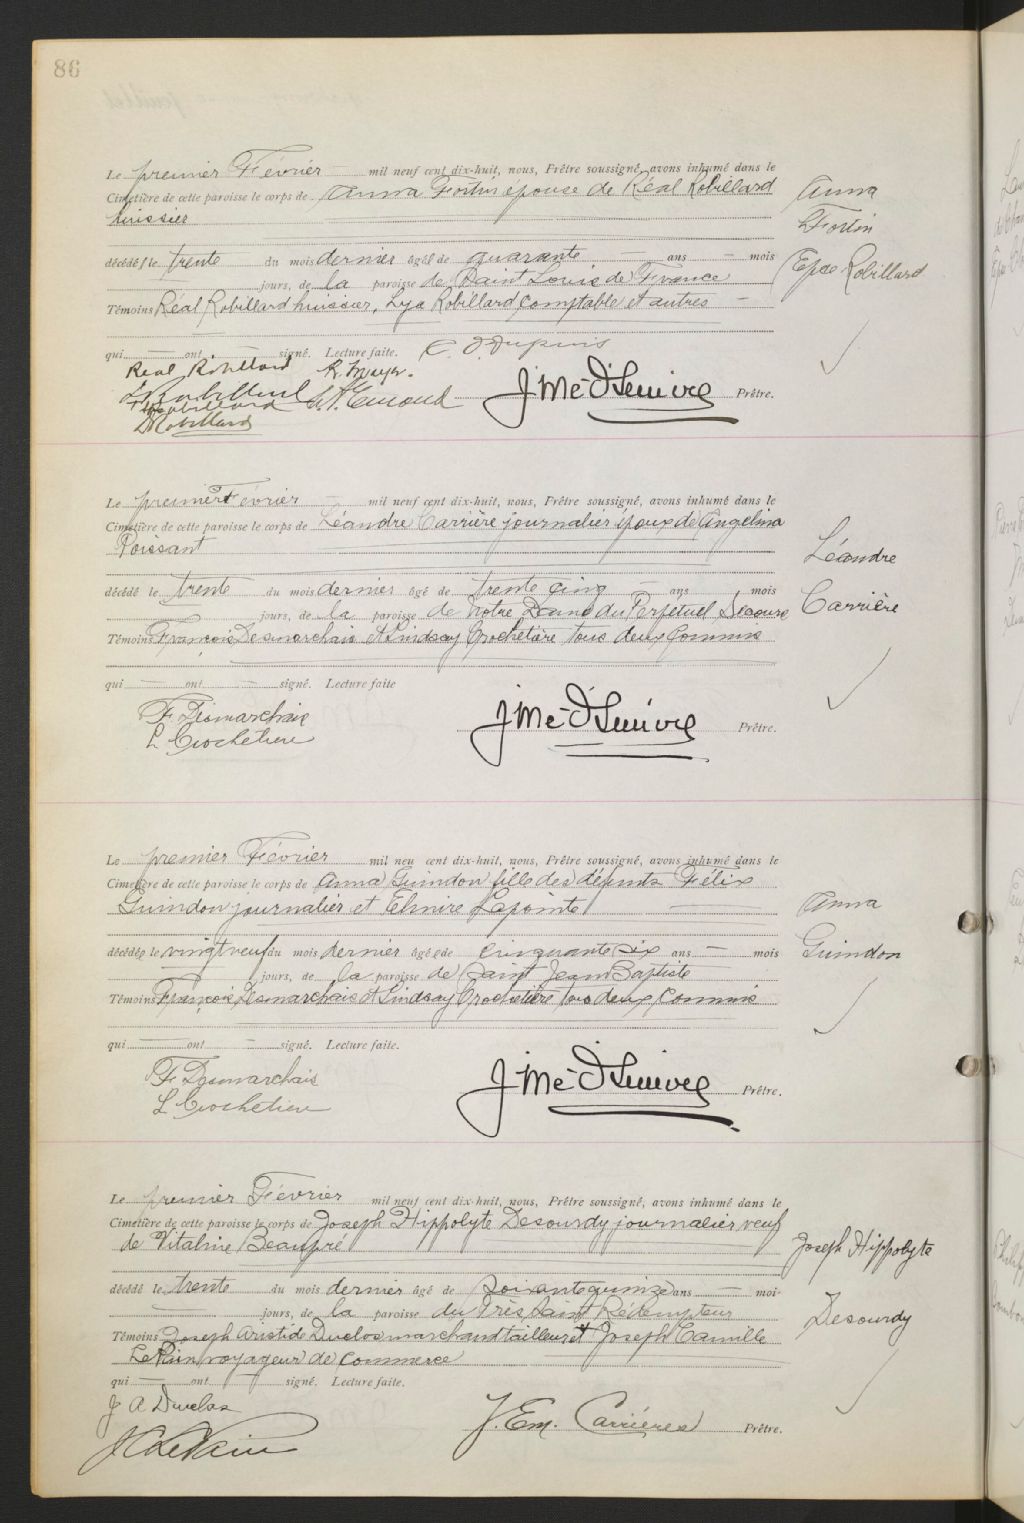 86
Le premier Février mil neuf cent dix-huit, nous, Prêtre soussigné, avons inhumé dans le
Cimetière de cette paroisse le corps de Anna Fortin épouse de Réal Robillard
huissier
Anna
Fortin
Epse Robillard
décédée le trente du mois dernier âgée de quarante ans mois
jours, de la paroisse de Saint Louis de France
Témoins Réal Robillard huissier, Lya Robillard comptable et autres
qui ont signé. Lecture faite. Dupuis
Real Robillard
Robillard
Robillard
Robillard
Prêtre.
Le premier Février mil neuf cent dix-huit, nous, Prêtre soussigné, avons inhumé dans le
Cimetière de cette paroisse le corps de Léandre Carrière journalier époux de Angelina
Poissant
Léandre
Carrière
décédé le trente du mois dernier âgé de trente cinq ans mois
jours, de la paroisse de Notre Dame du Perpétuel Secours
Témoins François Desmarchais et Lindsay Crochetière tous deux commis
qui ont signé. Lecture faite
F Desmarchais
L Crochetiere
Prêtre.
Le premier Février mil neu cent dix-huit, nous, Prêtre soussigné, avons inhumé dans le
Cimetière de cette paroisse le corps de Anna Guindon fille des défunts Félix
Guindon journalier et Elmire Lapointe
Anna
Guindon
décédée le vingt neuf du mois dernier âgée de cinquante six ans mois
jours, de la paroisse de Saint Jean Baptiste
Témoins François Desmarchais et Lindsay Crochetière tous deux commis
qui ont signé. Lecture faite.
F Desmarchais
L Crochetiere
Prêtre.
Le premier Février mil neuf cent dix-huit, nous, Prêtre soussigné, avons inhumé dans le
Cimetière de cette paroisse le corps de Joseph Hippolyte Desourdy journalier veuf
de Vitaline Beaupré
Joseph Hippolyte
Desourdy
décédé le trente du mois dernier âgé de soixante quinze ans moi-
jours, de la paroisse du Très Saint Rédempteur
Témoins Joseph Aristide Duclos marchand tailleur et Joseph Camille
LePain voyageur de commerce
qui ont signé. Lecture faite.
J A Duclos
J C LePain
J. Em. Carrières Prêtre.